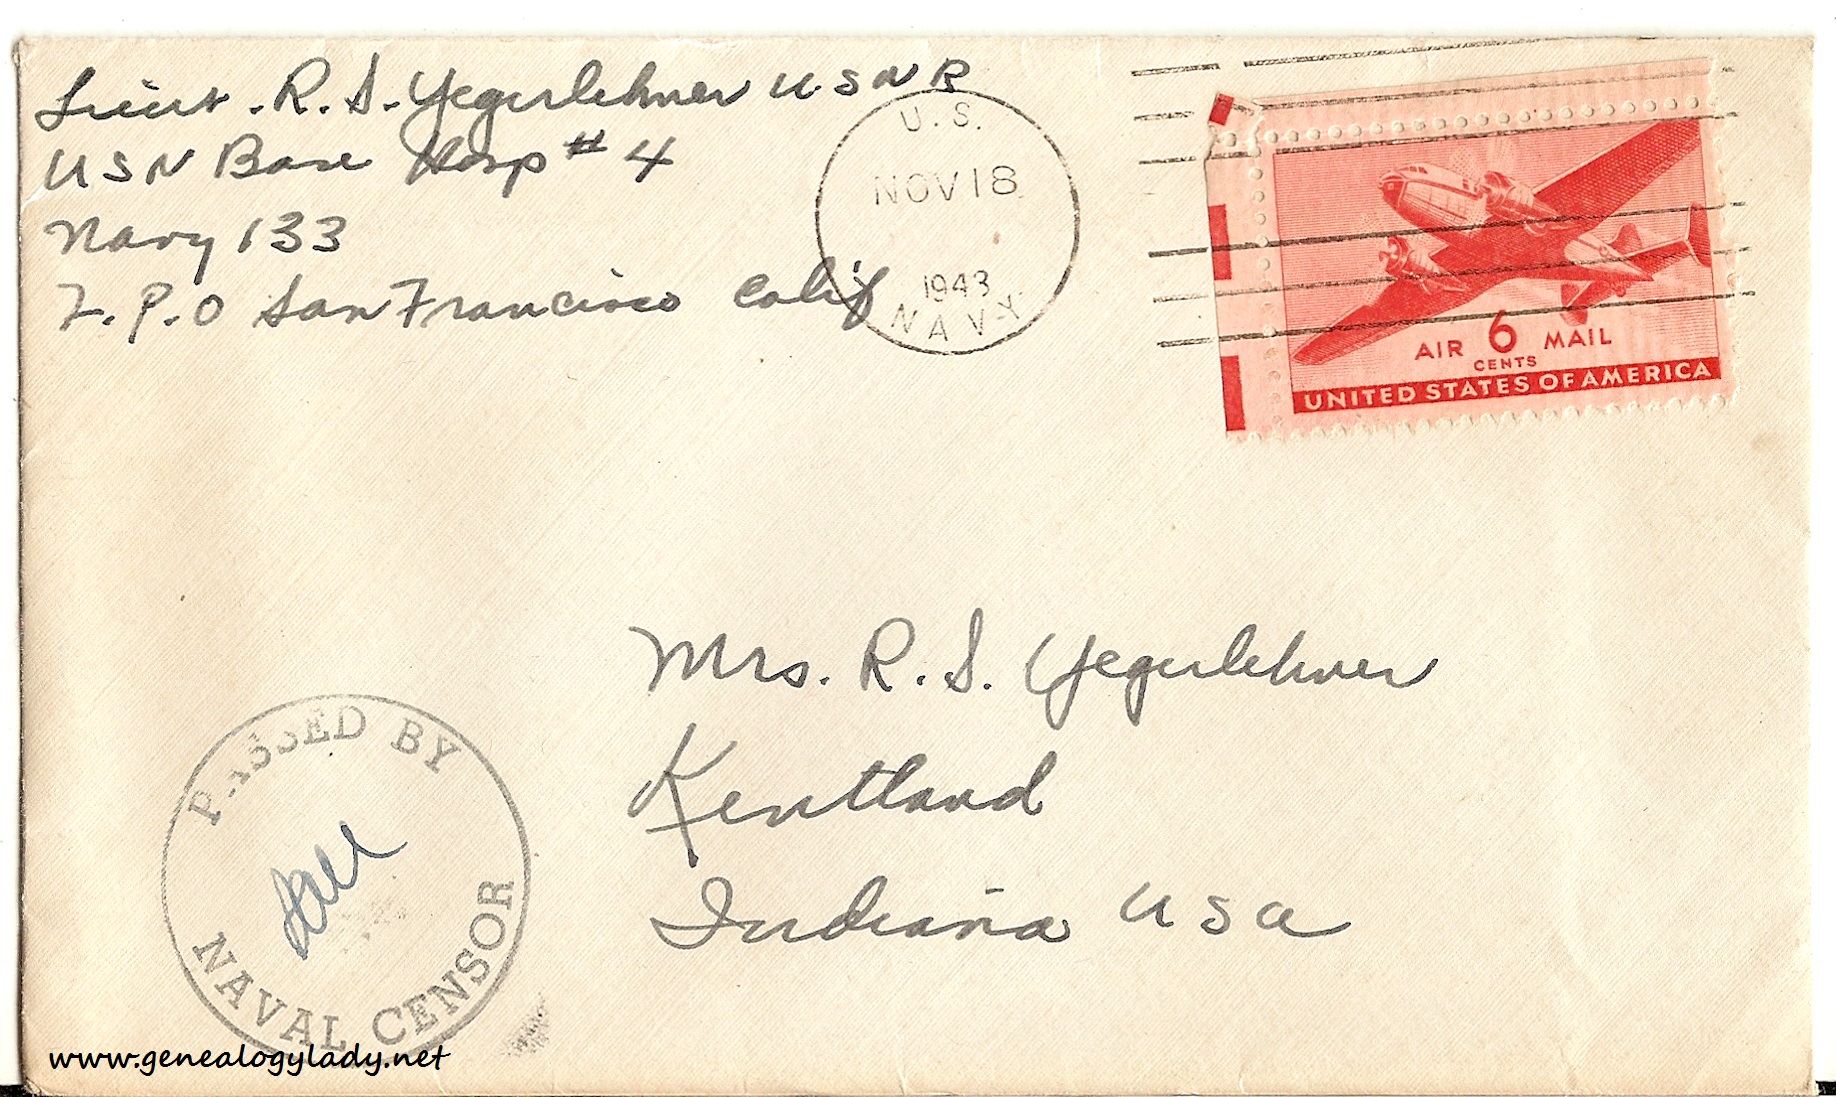 Lieut. R. S. Yegerlehner USNR
USN Base Hosp # 4
Navy 133
F.P.O San Francisco Calif
U.S.
NOV 18
1943
NAVY
AIR 6 MAIL
CENTS
UNITED STATES OF AMERICA
Mrs. R. S. Yegerlehner
Kentland
Indiana USA
PASSED BY
NAVAL CENSOR
www.genealogylady.net